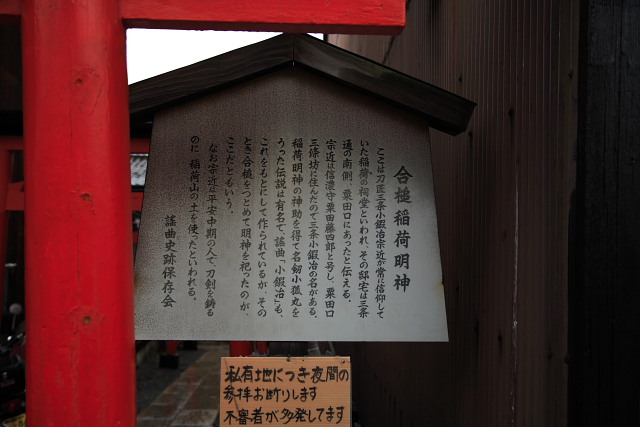 合槌稲荷明神
ここは刀匠三条小鍛冶宗近が常に信仰して
いた稲荷の祠堂といわれ、その邸宅は三条
通の南側、粟田口にあったと伝える。
宗近は信濃守粟田藤四郎と号し、粟田口
三條坊に住んだので三条小鍛冶の名がある。
稲荷明神の神助を得て名剱小狐丸を
うった伝説は有名で、謡曲「小鍛冶」も、
これをもとにして作られているが、その
とき合槌をつとめて明神を祀ったのが、
ここだともいう。
なお宗近は平安中期の人で、刀剣を鋳る
のに、稲荷山の土を使ったといわれる。
謡曲史跡保存会
私有地につき夜間の
参拝お断りします
不審者が多発してます